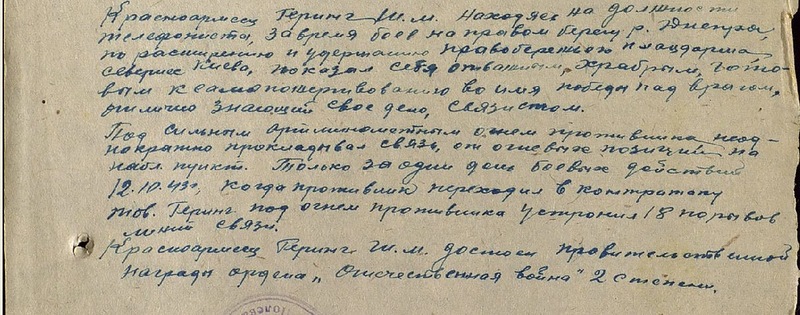 Красноармеец Геринг Ш.М. находясь на должности
телефониста, за время боев на правом берегу р. Днепра,
по расширению и удержанию правобережного плацдарма
севернее Киева, показал себя отважным, храбрым, гото-
вым к самопожертвованию во имя победы над врагом,
отлично знающий свое дело, связистом.
Под сильным арт.минометным огнем противника неод-
нократно прокладывал связь, от огневых позиций на
набл. пункт. Только за один день боевых действий
12.10.43г, когда противник переходил в контратаку
тов. Геринг под огнем противника устранил 18 порывов
линий связи.
Красноармеец Геринг Ш.М. достоен правительственной
награды ордена „Отечественная война" 2 степени.